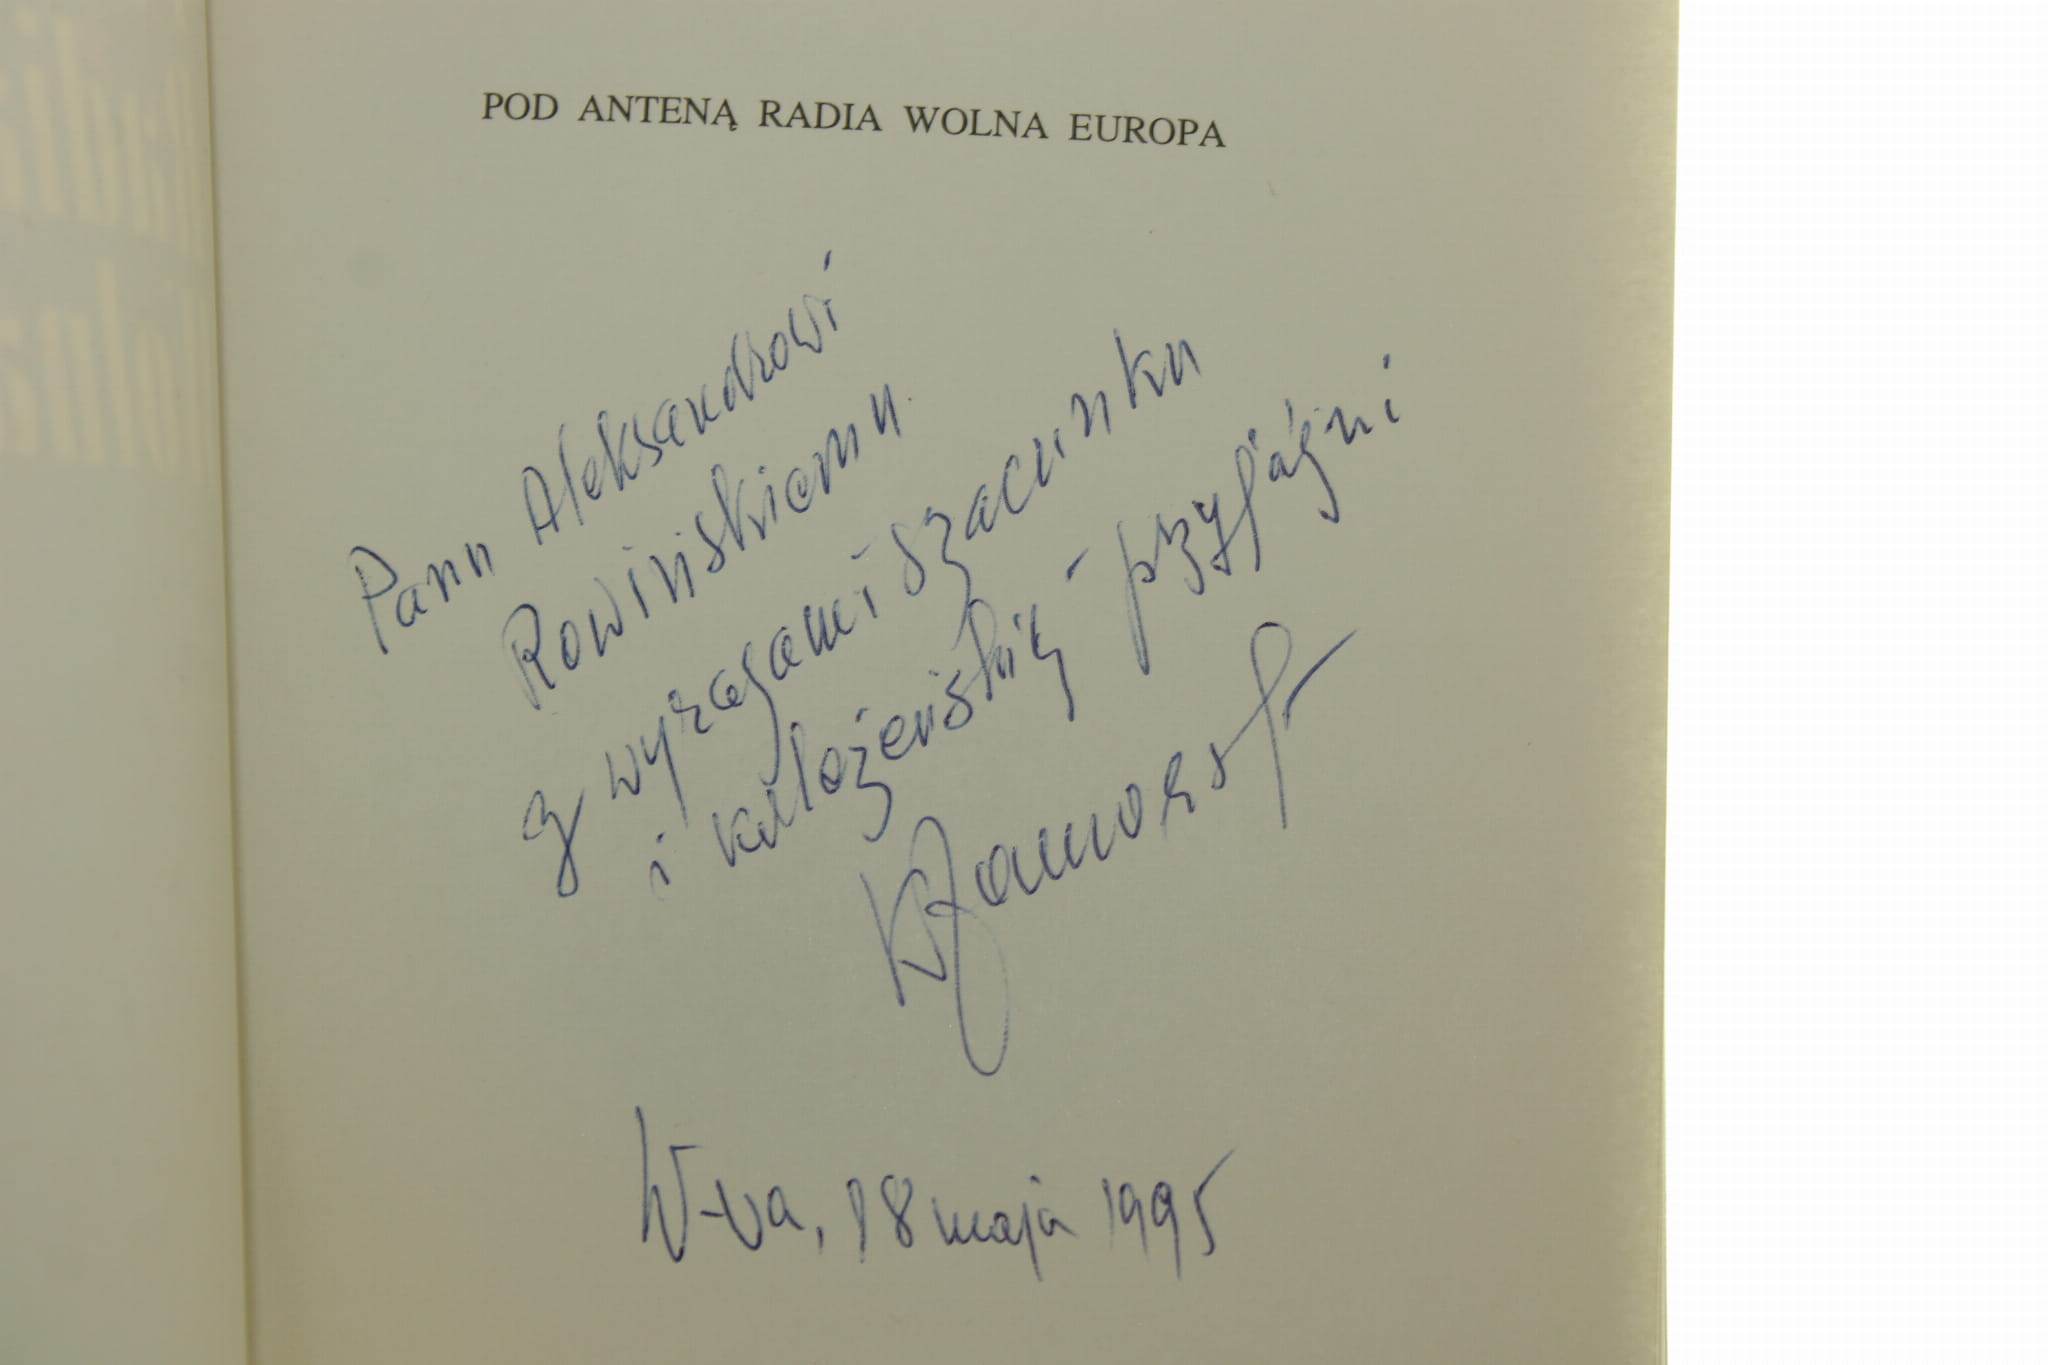 POD ANTENĄ RADIA WOLNA EUROPA
Panu Aleksandrowi
Rowińskiemu
z wyrazami szacunku
i koleżeńskiej przyjaźni
K Zamorski
W-wa, 18 maja 1995